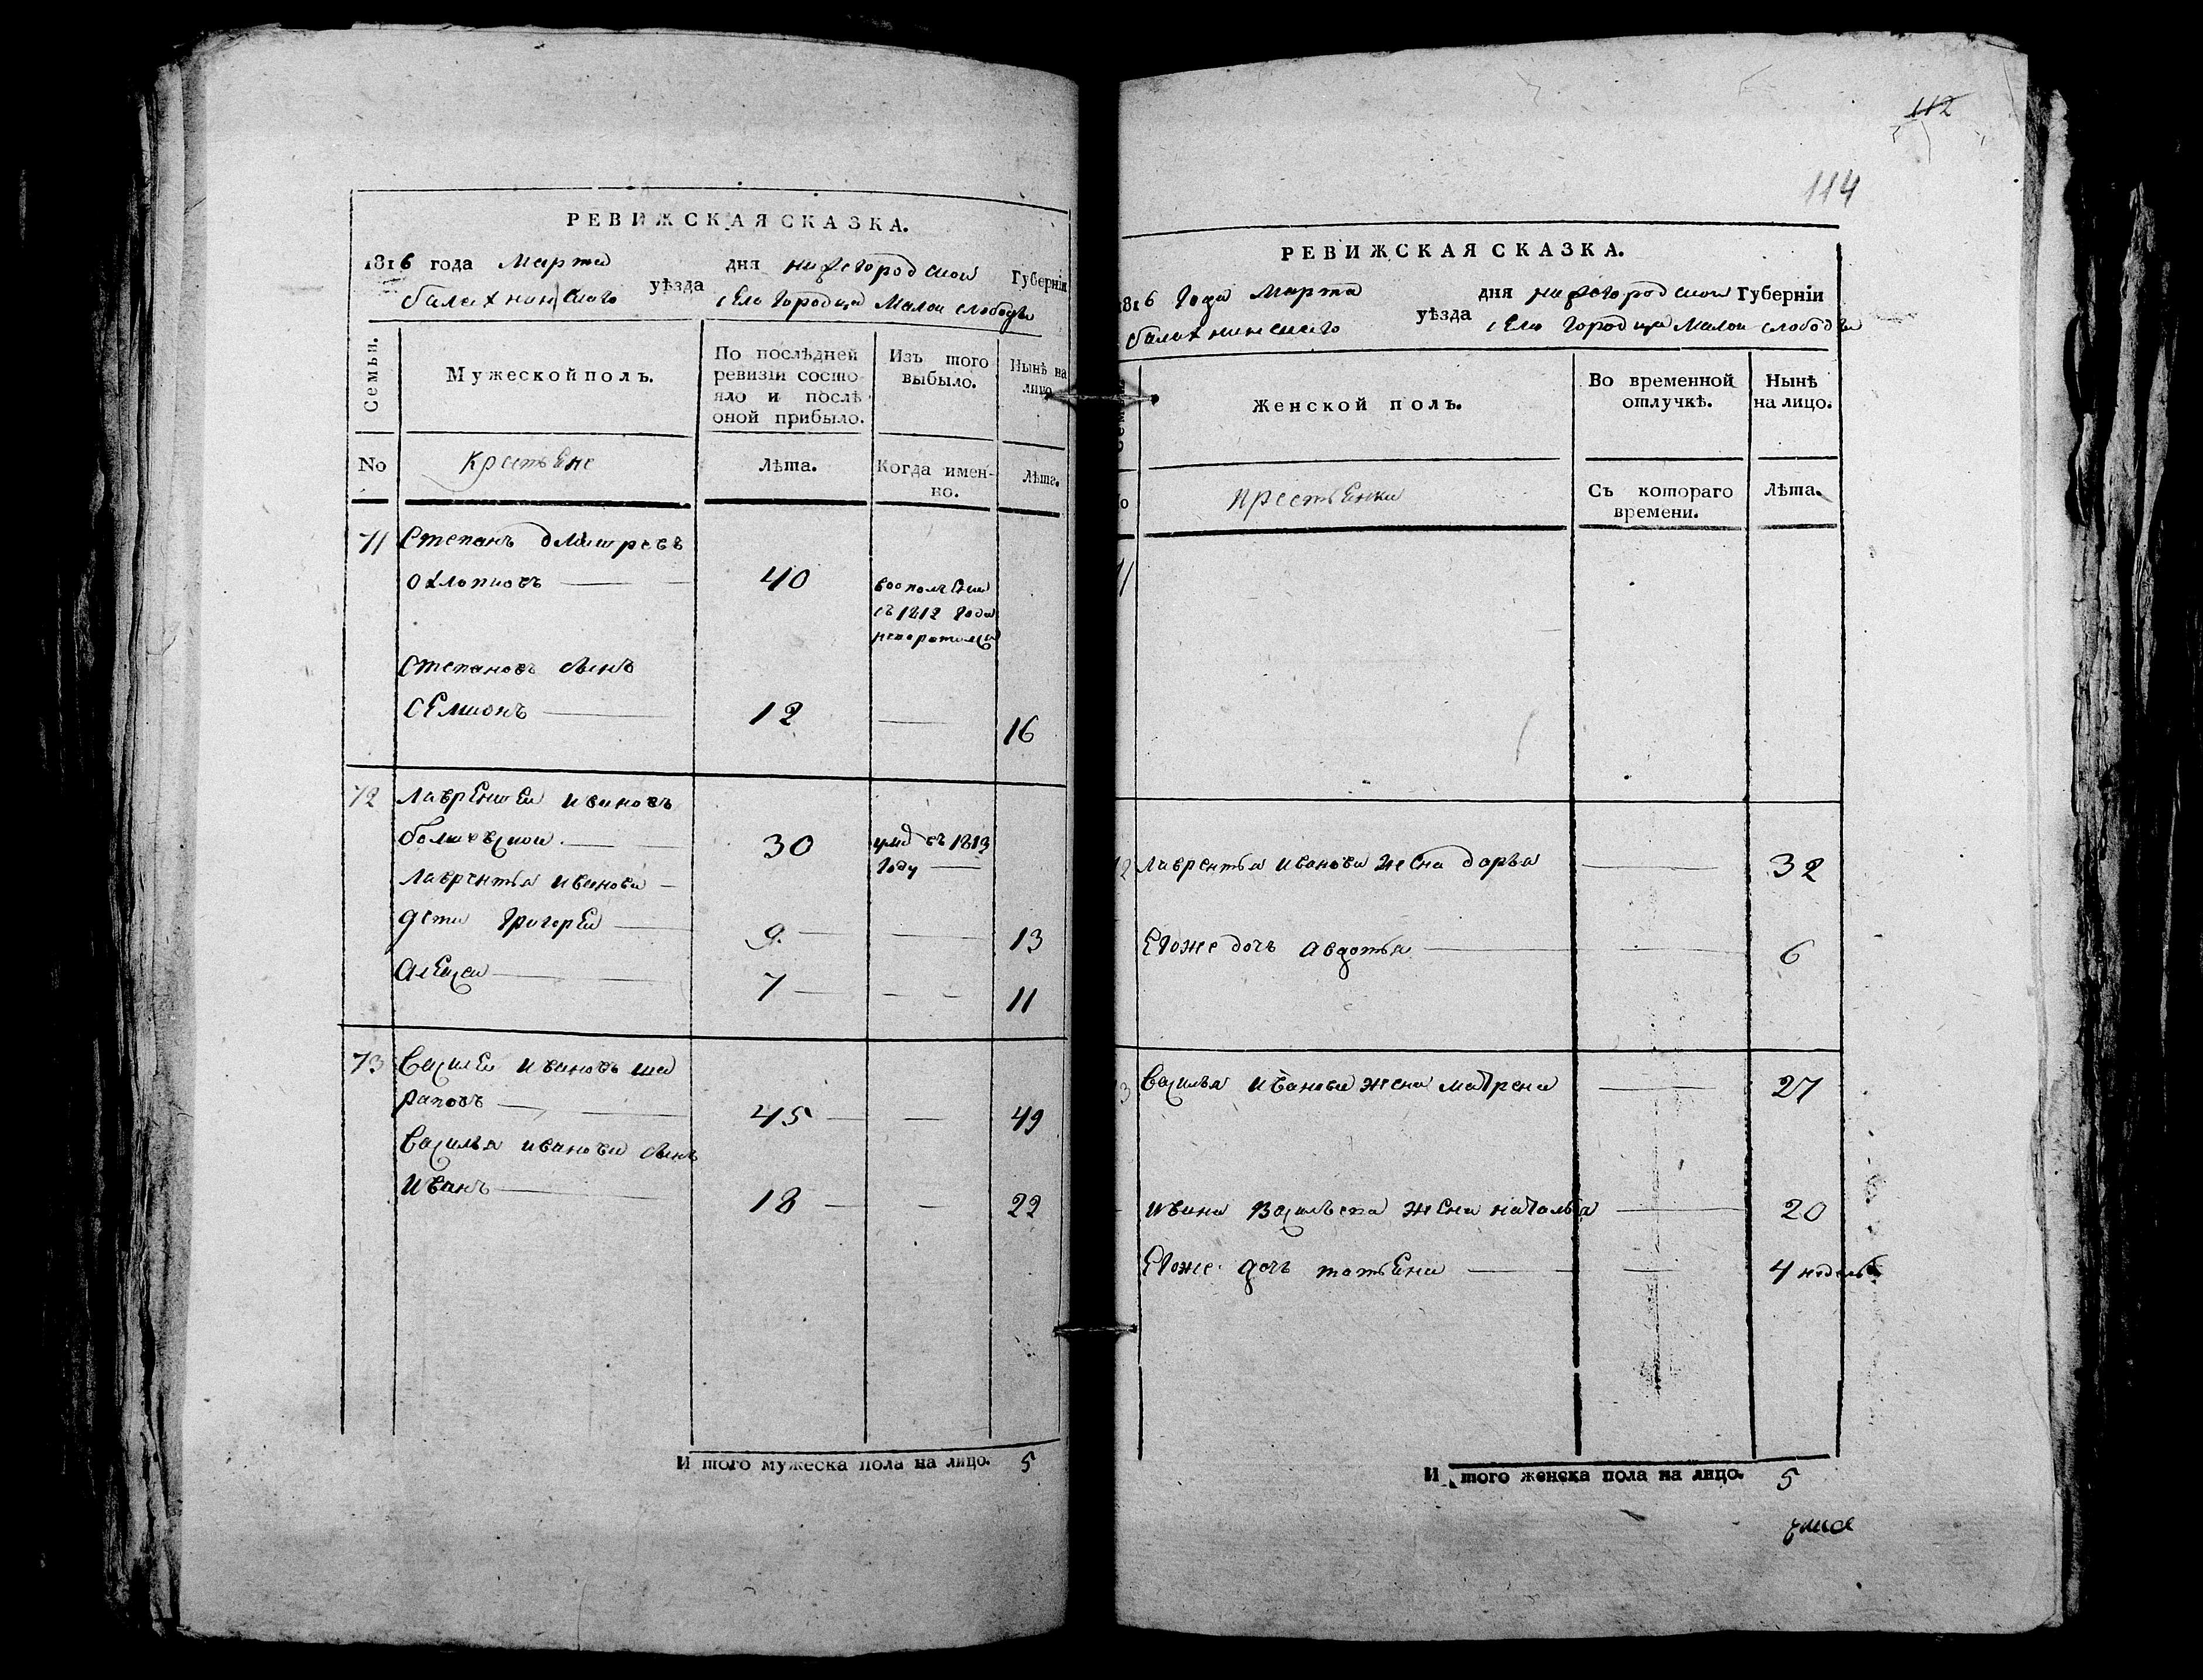 РЕВИЖСКАЯ СКАЗКА.
1816 года Марта дня нижегородской Губерніи
балахнинского уѣзда села городца Малой слободы
Семьи.
Мужеской полъ.
По послѣдней ревизіи состояло и послѣ оной прибыло.
Изъ того выбыло.
Нынѣ на лицо.
No
крестьяне
Лѣта.
Когда именно.
Лѣта.
71 Степанъ дмитреевъ
охлопковъ 40
съ 1812 года
Степановъ сынъ
семионъ 12 16
72 лаврентей ивановъ
30 умре въ 1813
году
лаврентья иванова
дети григорей 9 13
алексей 7 11
73 василей ивановъ ша
раповъ 45 49
василья иванова сынъ
иванъ 18 22
И того мужеска пола на лицо. 5
112
114
РЕВИЖСКАЯ СКАЗКА.
1816 года Марта дня нижегородской Губерніи
балахнинского уѣзда села городца Малой слободы
Женской полъ.
Во временной отлучкѣ.
Нынѣ на лицо.
крестьянки
Съ котораго времени.
Лѣта.
лаврентья иванова жена дарья 32
Егоже дочь авдотья 6
василья иванова жена матрена 27
ивана васильева жена наталья 20
Егоже дочь татьяна 4 недели
И того женска пола на лицо. 5